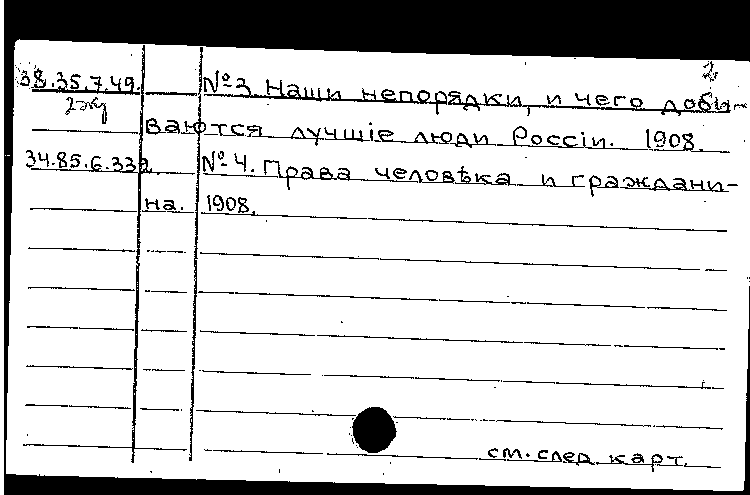 2
38.35.7.49. № 3. Наши непорядки, и чего доби-
2 экз
ваются лучшіе люди Россіи. 1908.
34.85.6.339. № 4. Права человѣка и граждани-
на. 1908.
см. след. карт.